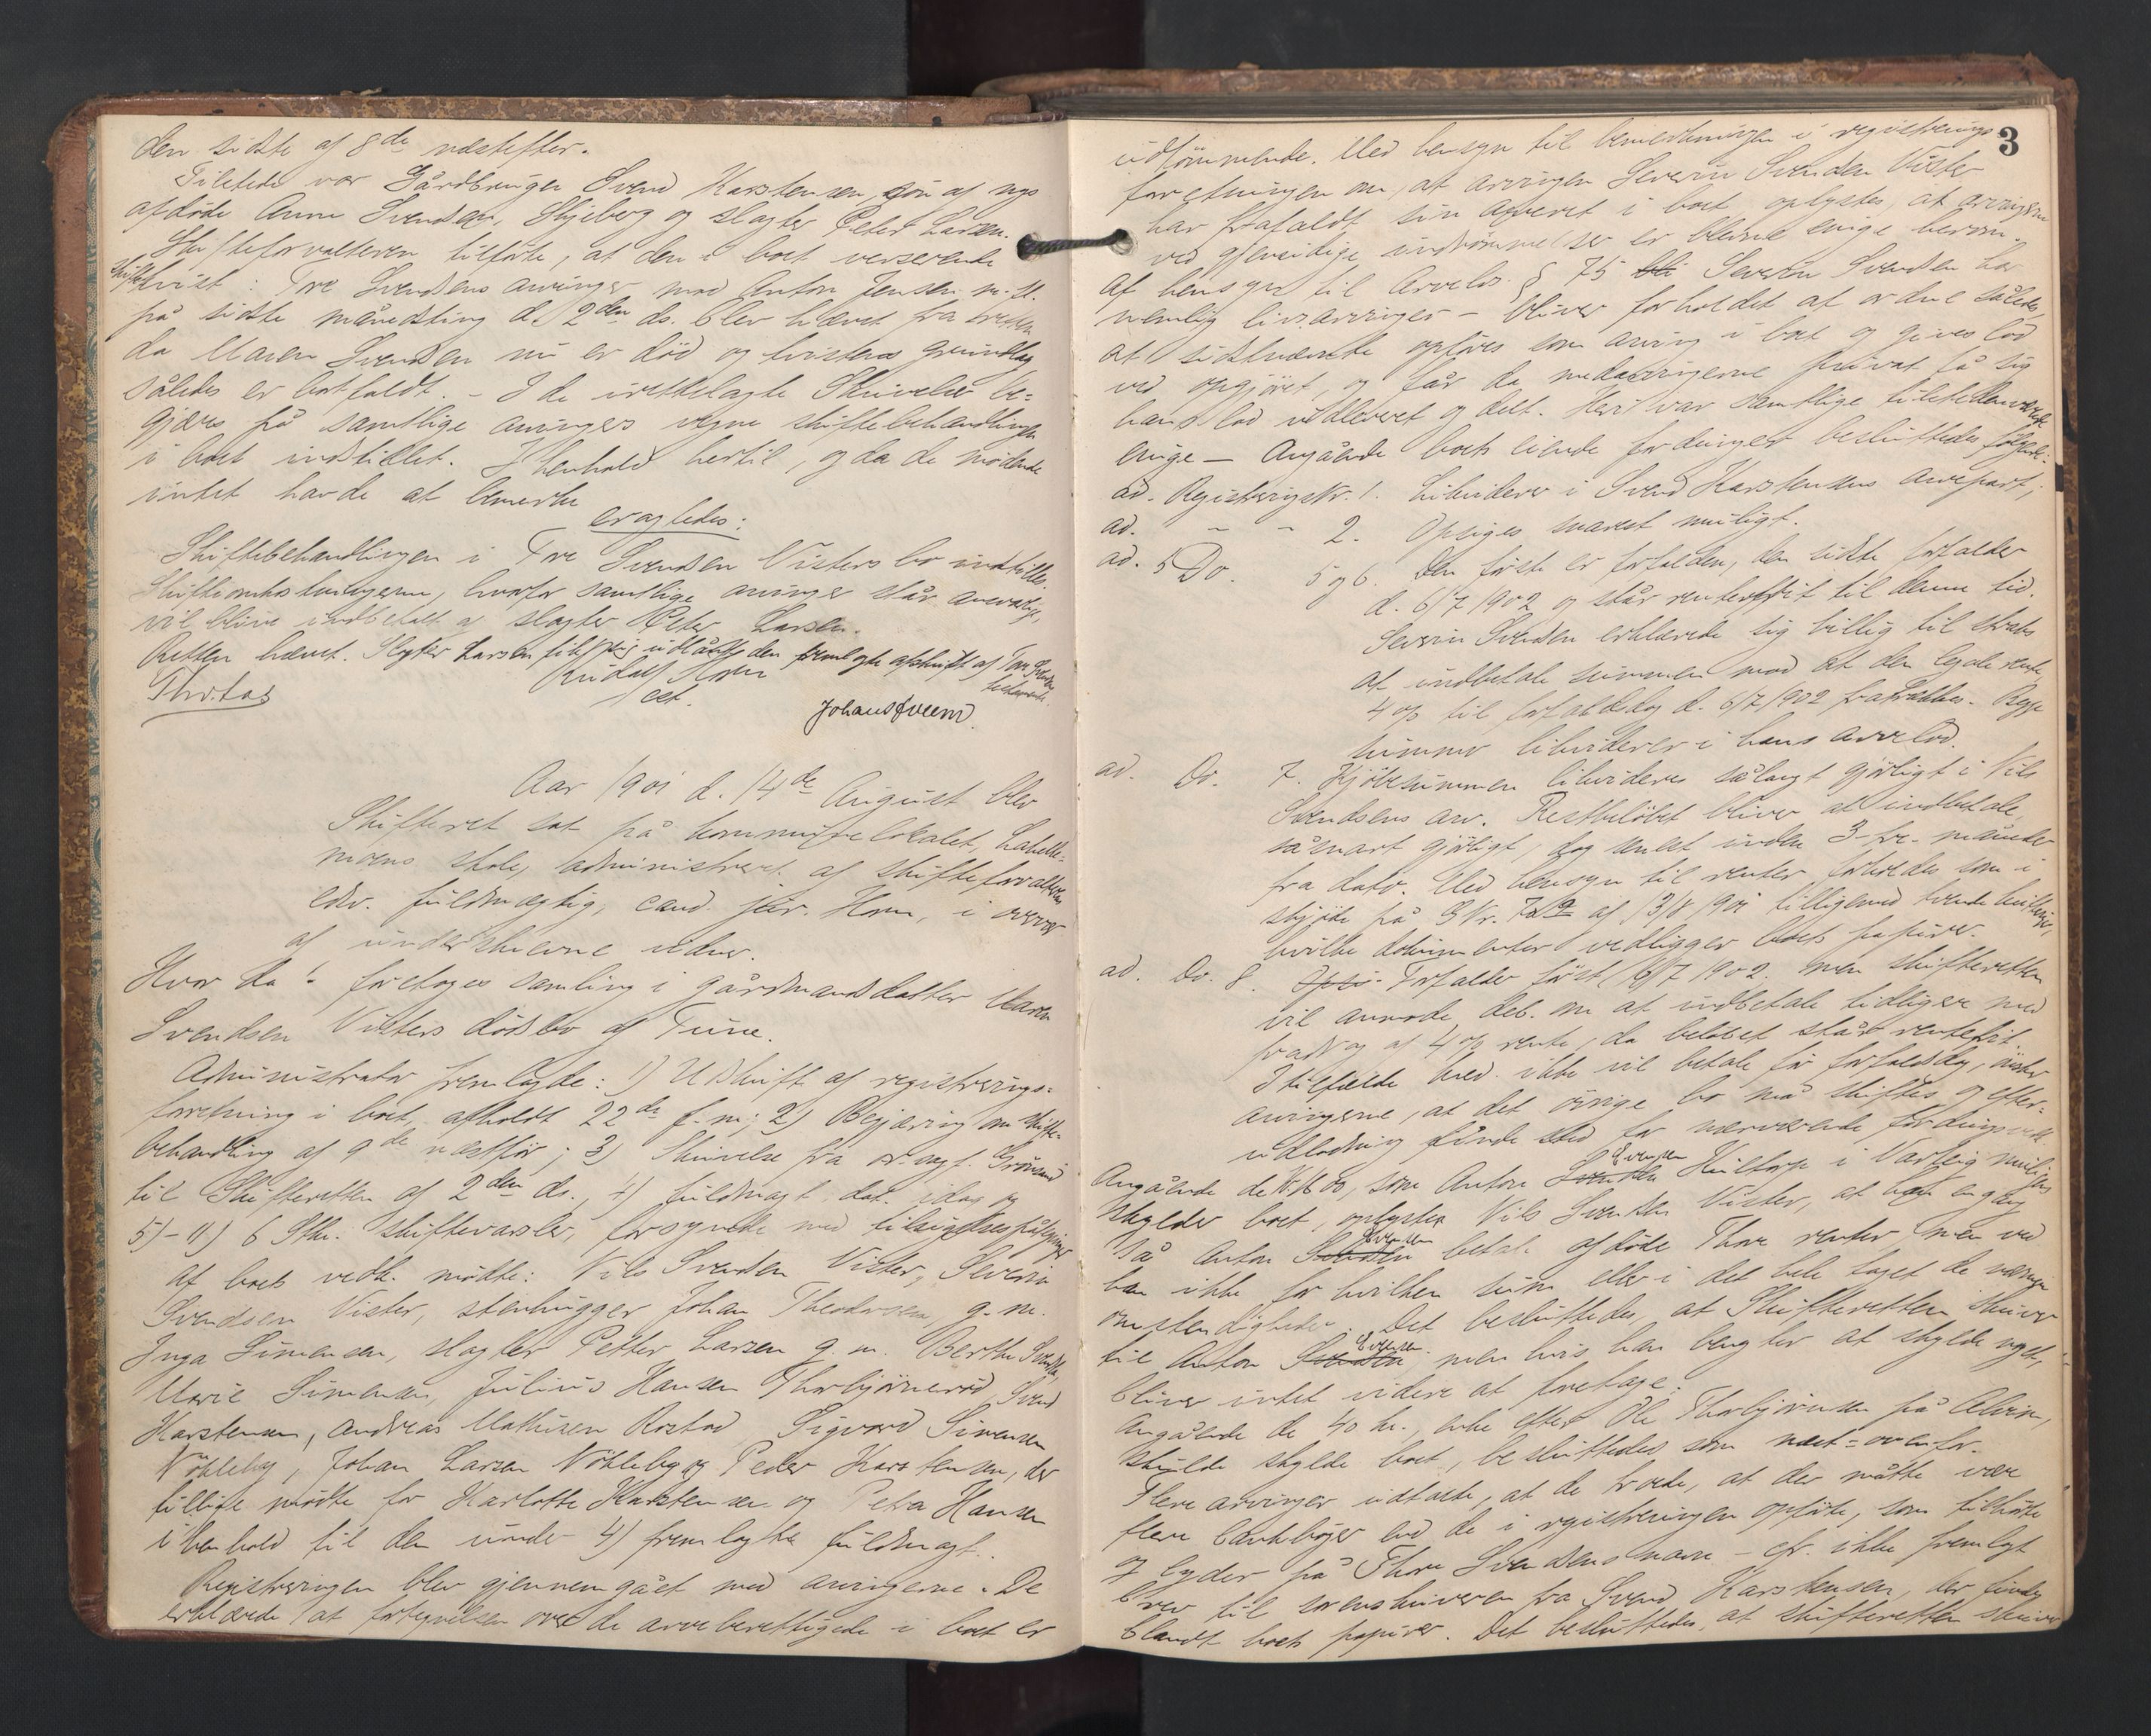 den sidste af 8de næstefter.
Tilstede var Gårdbruger Svend Karstensen, søn af nys
afdøde Anne Svendsen, Skjeberg og slagter Peter Larsen.
Skifteforvalteren tilførte, at den i boet verserende
skiftetvist: Tore Svendsens arvinger mod Anton Jensen m. fl.
på sidste månedsting d. 2den ds. blev hævet fra retten
da Maren Svendsen nu er død og tvistens grundlag
således er bortfaldt. - I de irettelagte Skrivelser be=
gjæres på samtlige arvingers vegne skiftebehandlingen
i boet indstillet. I henhold hertil, og da de mødende
intet havde at bemerke
eragtedes:
Skiftebehandlingen i Tore Svendsen Visters bo indstilles.
Skifteomkostningerne, hvorfor samtlige arvinger står ansvarlige,
vil blive indbetalt af slagter Peter Larsen.
Retten hævet. Slagter Larsen fik sig udlånt den fremlagte afskrift af Tore Svendsens
testamente.
Rudolf Horn
cst.
Tho. Las
Johan Sveem
Aar 1901 d. 14de August blev
Skifteret sat på kommunelokalet, Labekk=
moens skole, administreret af skifteforvalterens
edsv. fuldmægtig, cand. jur. Horn, i overvær
af underskrevne vidner.
Hvor da: foretoges samling i gårdmandsdatter Maren
Svendsen Visters dødsbo af Tune.
Administrator fremlagde: 1) Udskrift af registrerings=
forretning i boet afholdt 22de f. m.; 2) Begjæring om skifte=
behandling af 9de næstfør; 3) Skrivelse fra o.r.sagf. Grønsund
til Skifteretten af 2den ds., 4) fuldmagt dat. idag og
5) - 11) 6 Stkr. skiftevarsler, forsynede med tilsigelsespåtegninger
af boets vedk. mødte: Nils Svendsen Vister, Severin
Svendsen Vister, stenhugger Johan Theodorsen, g. m.
Inga Simensen, slagter Petter Larsen g. m. Berthe Svendsen,
Marie Simensen, Julius Hansen Thorbjørnerød, Svend
Karstensen, Andreas Mathisen Rostad, Sigvard Simensen
Nøkleby, Johan Larsen Nøkleby og Peder Karstensen, der
tillige mødte for Karlotte Karstensen og Petra Hansen
i henhold til den under 4) fremlagte fuldmagt.
Registreringen blev gjennemgået med arvingerne. De
erklærede at fortegnelsen over de arveberettigede i boet er
3
udtømmende. Med hensyn til bemerkningen i registrerings
forretningen om, at arvingen Severin Svendsen Vister
har frafaldt sin arveret i boet, oplystes, at arvingerne
ved gjensidige indrømmelser er blevne enige herom.
Af hensyn til Arvelov. § 75 Severin Svendsen har
nemlig livsarvinger - bliver forholdet at ordne således,
at sidstnævnte opføres som arving i boet og gives lod
ved opgjøret, og får da medarvingerne privat få sig
hans lod udleveret og delt. Heri var samtlige tilstedeværende
enige. - Angående boets eiende fordringer besluttedes følgende:
ad. Registreringsnr. 1. Likviderer i Svend Karstensens arvepart;
ad. - - 2. Opsiges snarest muligt.
ad. 5 Do. 5 og 6. Den første er forfalden, den sidste forfalder
d. 6/7 1902 og står rentefrit til denne tid.
Severin Svendsen erklærede sig villig til straks
at indbetale summen mod at den legale rente,
4 o/o til forfaldsdag d. 6/7 1902 fratrækkes. Begge
summer likviderer i hans arvelod.
ad. Do. 7. Kjøbesummen likvideres sålangt gjørligt i Nils
Svendsens arv. Restbeløbet bliver at indbetale,
såsnart gjørligt, dog senest inden 3-tre- måneder
fra dato. Med hensyn til renter forholdes som i
skjøde på GNr. af 13/8 1901 tilligemed
hvilke dokumenter vedligger boets papirer.
ad. Do. 8. Forfalder først 16/7 1902. men skifteretten
vil anmode deb. om at indbetale tidligere med
fradrag af 4 o/o rente, da beløbet står rentefrit.
I tilfælde hved. ikke vil betale før forfaldsdag, ønsker
arvingerne, at det øvrige bo må skiftes og efter=
udlodning finde sted for nærværende fordrings vedk.
Angående de Kr. 1600, som Anton Svensen Hultorp i Varteig muligens
skylder boet, oplyste Nils Svendsen Vister, at han engang
så Anton Svensen betale afdøde Thore renter, men ved
han ikke for hvilken sum eller i det hele taget de nærmere
omstendigheder. Det besluttedes, at Skifteretten skriver
til Anton Svensen, men hvis han benegter at skylde noget,
bliver intet videre at foretage.
Angående de 40 kr., enke efter Ole Thorbjørnsen på Alvim,
skulde skylde boet, besluttedes som næst=ovenfor.
Flere arvinger udtalte, at de troede, at der måtte være
flere bankbøger end de i registreringen opførte, som tilhørte
og lyder på Thore Svendsens navn - cfr. ikke fremlagt
brev til sorenskriveren fra Svend Karstensen, der findes
blandt boets papirer. Det besluttedes, at skifteretten skriver